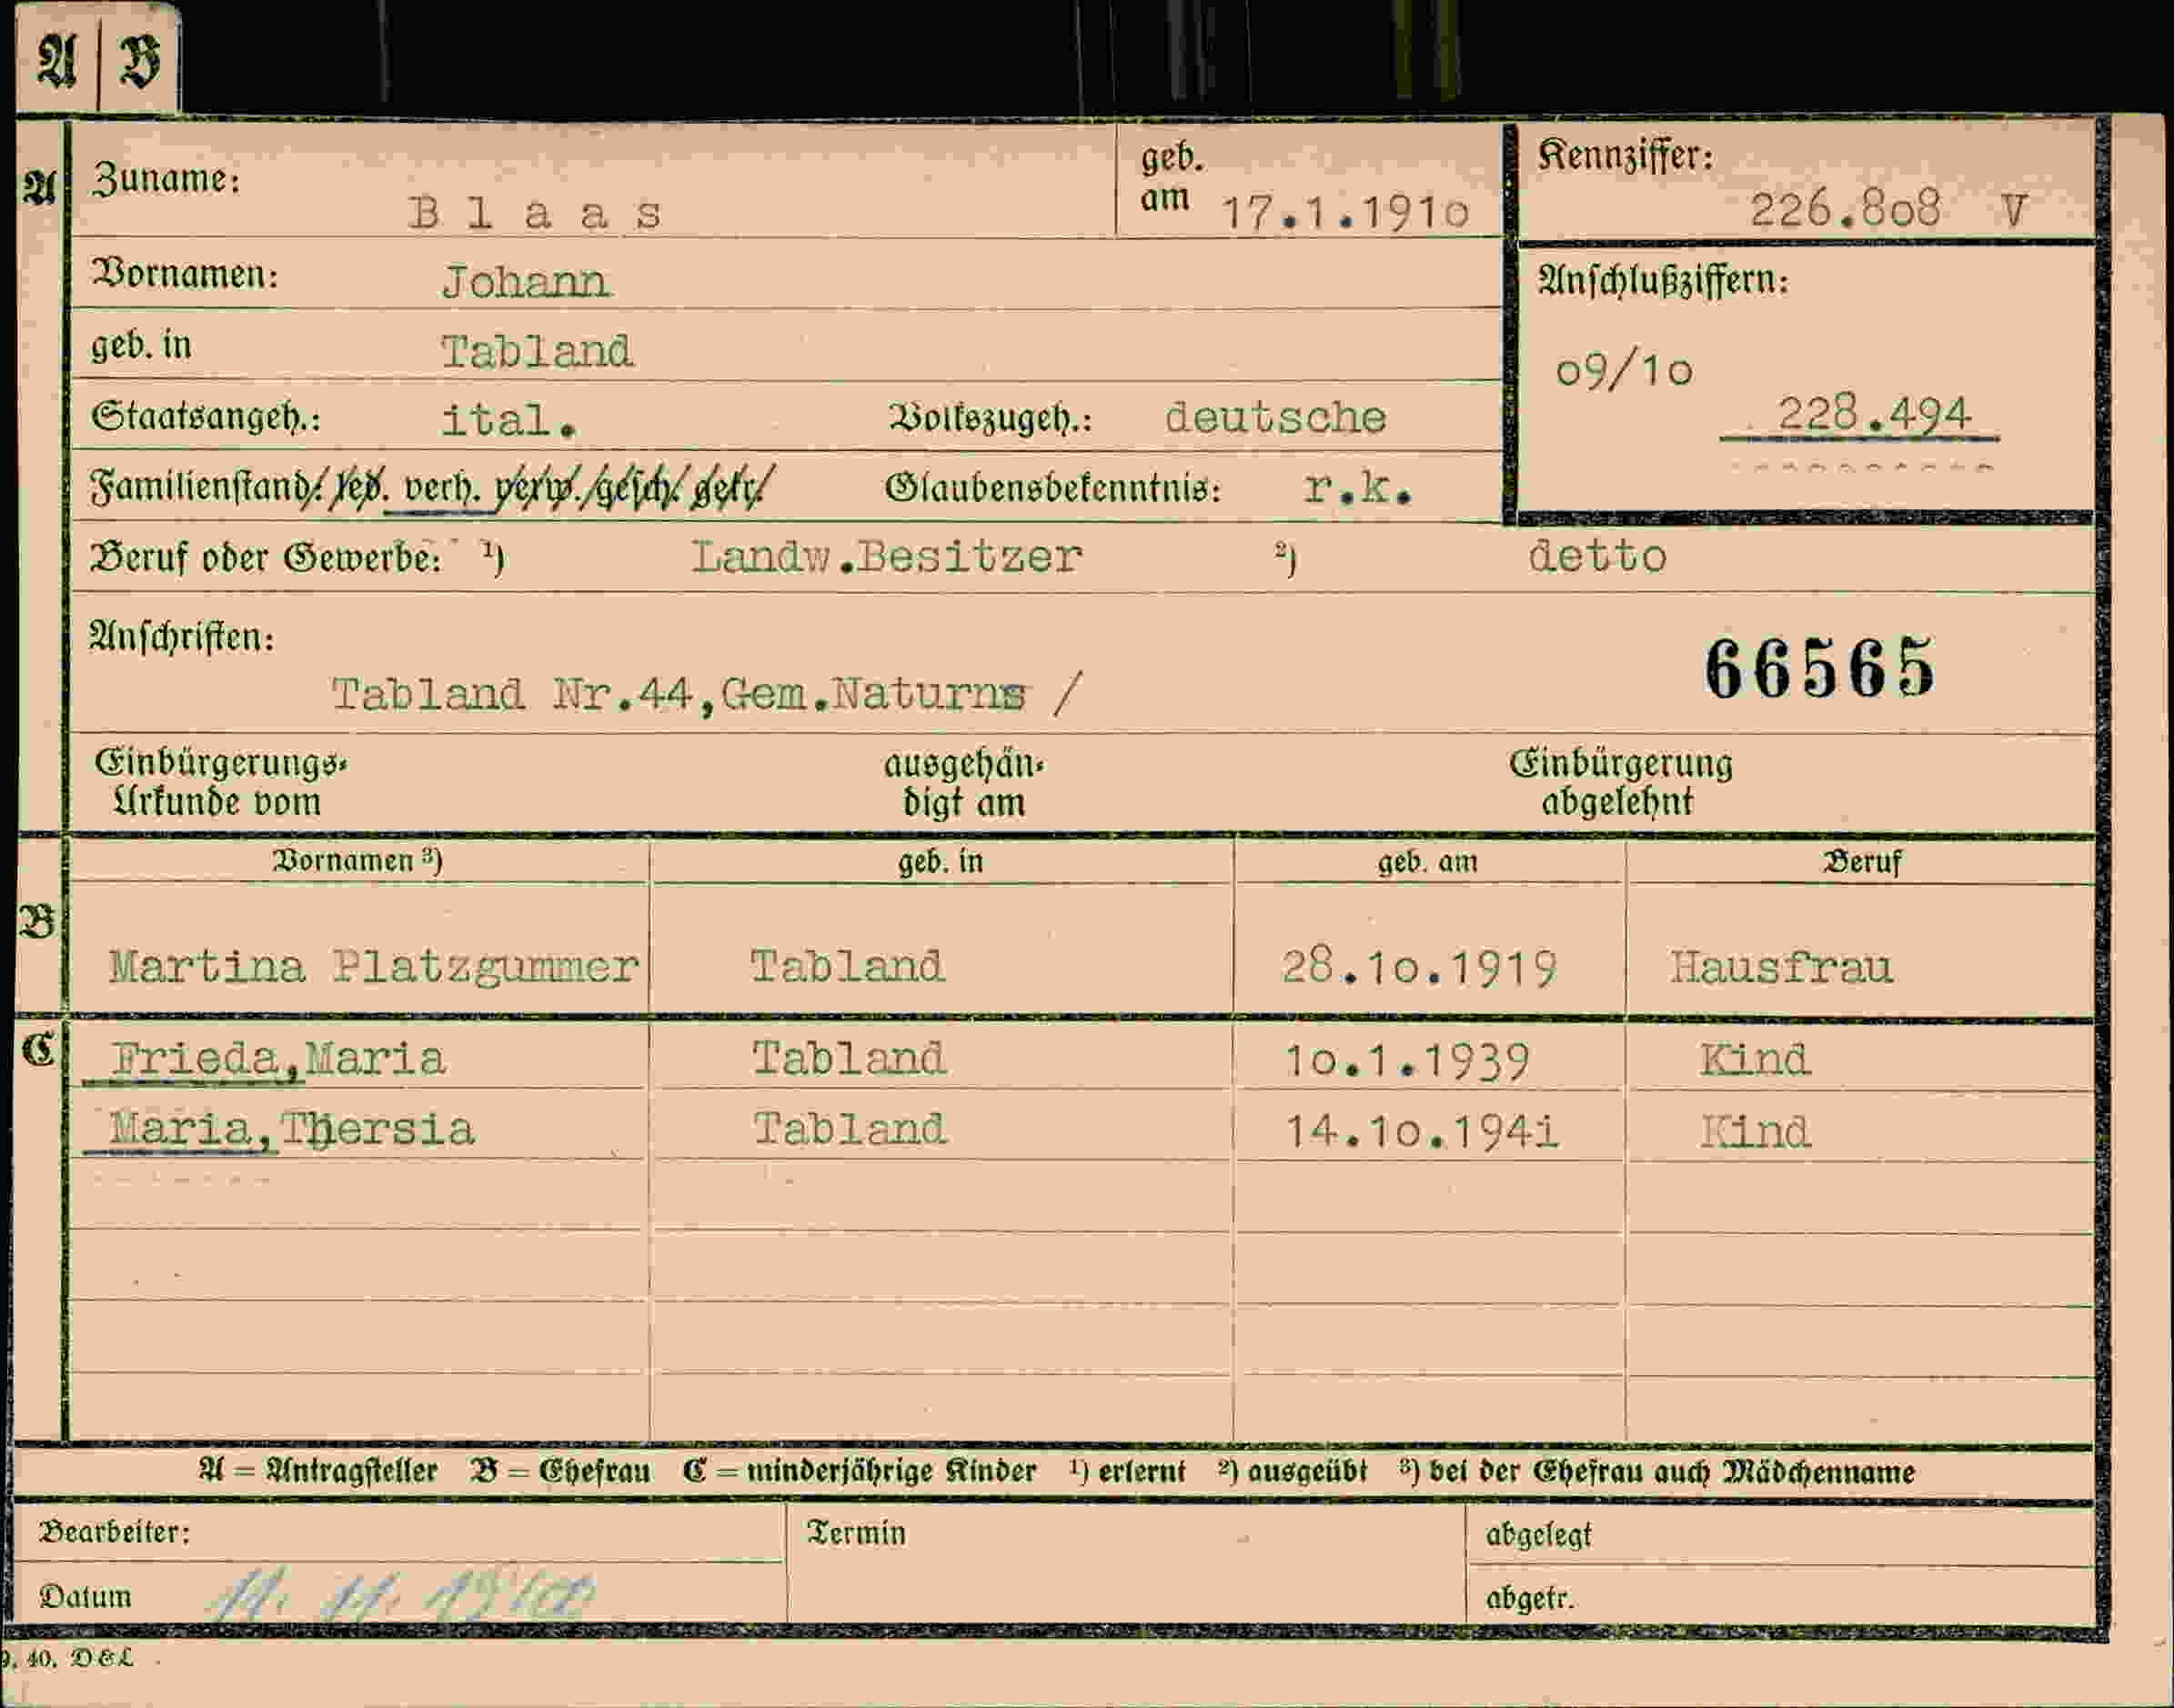 A B
A
Zuname: Blaas geb. am 17.1.191o Kennziffer: 226.8o8 V
Vornamen: Johann
Anschlußziffern:
geb. in Tabland
o9/1o
228.494
Staatsangeh.: ital. Volkszugeh.: deutsche
Familienstand: led. verh. verw. gesch. getr. Glaubensbekenntnis: r.k.
Beruf oder Gewerbe: ¹) Landw.Besitzer ²) detto
Anschriften:
Tabland Nr.44,Gem.Naturns /
66565
Einbürgerungs- Urkunde vom ausgehän- digt am Einbürgerung abgelehnt
Vornamen ³) geb. in geb. am Beruf
B
Martina Platzgummer Tabland 28.1o.1919 Hausfrau
C
Frieda,Maria Tabland 1o.1.1939 Kind
Maria,Thersia Tabland 14.1o.194i Kind
A = Antragsteller B = Ehefrau C = minderjährige Kinder ¹) erlernt ²) ausgeübt ³) bei der Ehefrau auch Mädchenname
Bearbeiter: Termin abgelegt
Datum 11. 11. abgetr.
9. 40. D&L